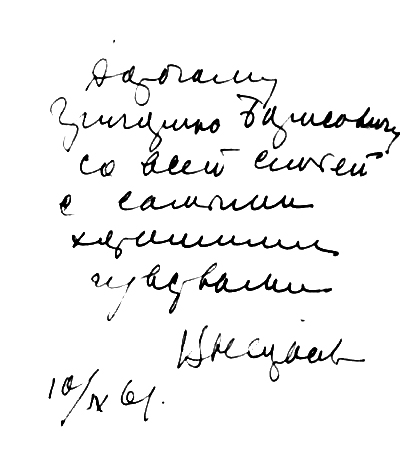 Дорогому
Григорию Борисовичу
со всей семьей
с самыми
хорошими
чувствами
10/IX 61.